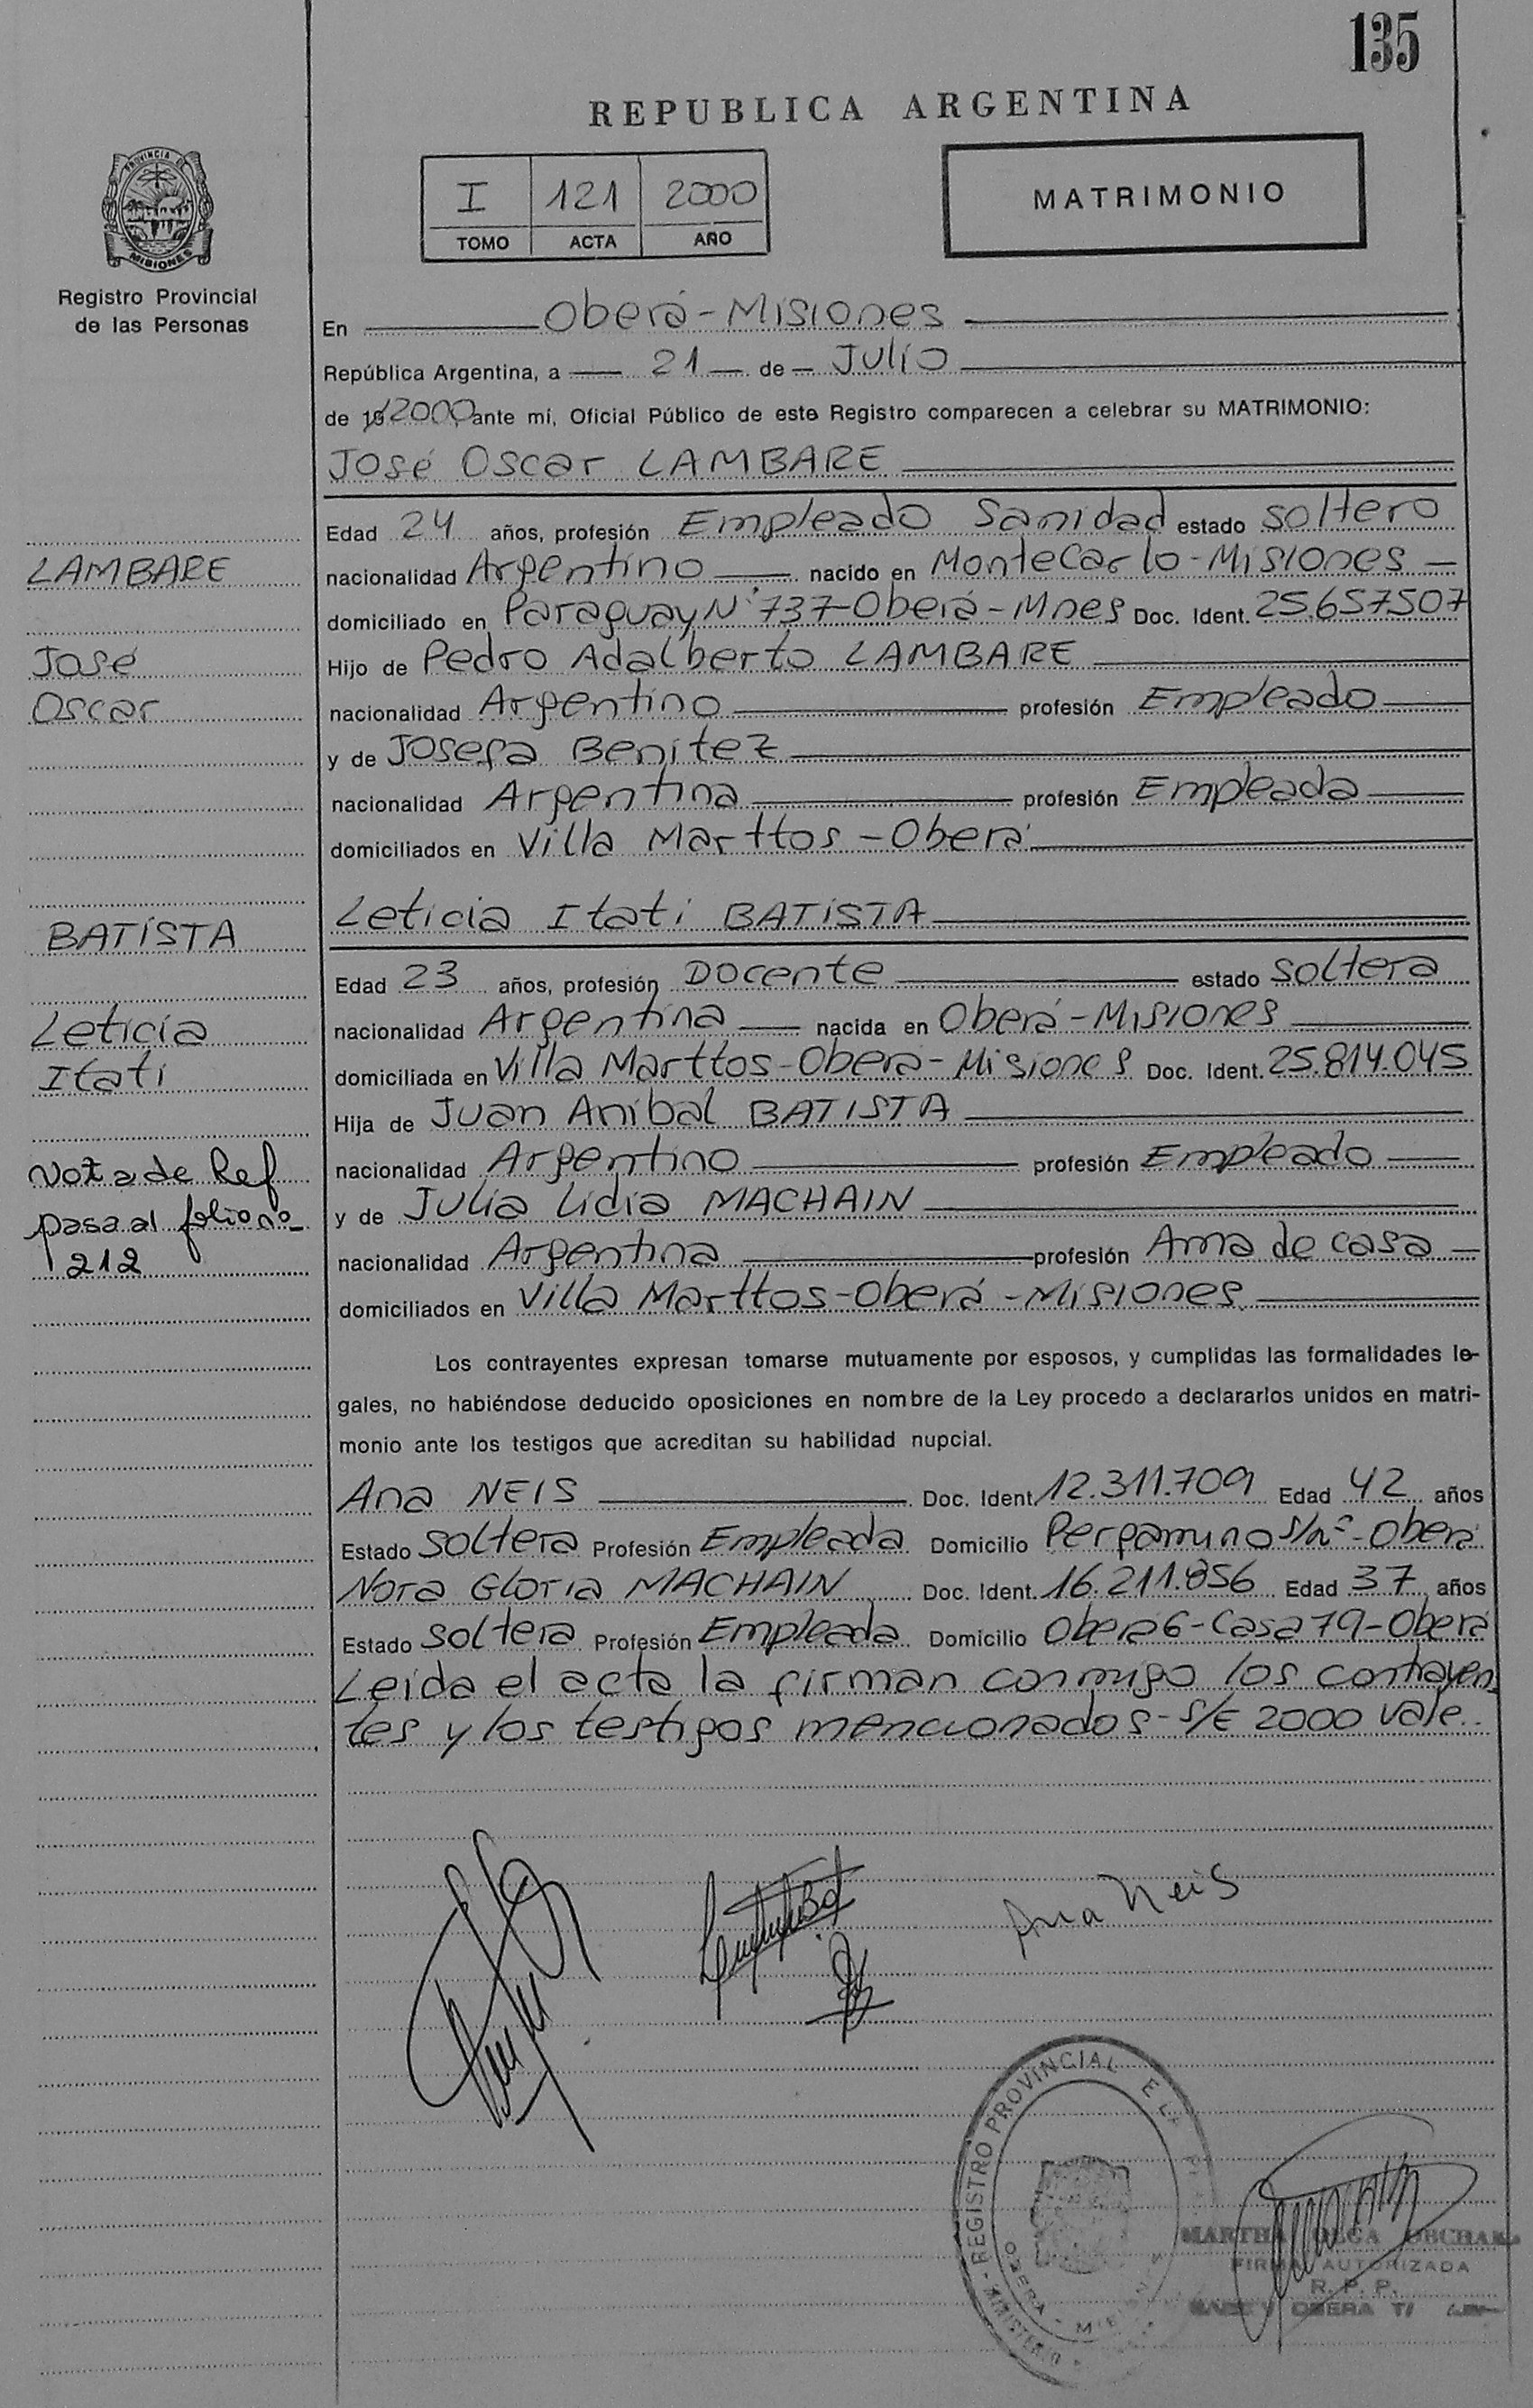 135
REPUBLICA ARGENTINA
I 121 2000
TOMO ACTA AÑO
MATRIMONIO
PROVINCIA DE
MISIONES
Registro Provincial
de las Personas
En Oberá-Misiones
República Argentina, a 21 de Julio
de 19 2000 ante mí, Oficial Público de este Registro comparecen a celebrar su MATRIMONIO:
José Oscar LAMBARE
Edad 24 años, profesión Empleado Sanidad estado soltero
nacionalidad Argentino nacido en MonteCarlo-Misiones
domiciliado en Paraguay N° 737-Oberá-Mnes Doc. Ident. 25.657.507
Hijo de Pedro Adalberto LAMBARE
nacionalidad Argentino profesión Empleado
y de Josefa Benítez
nacionalidad Argentina profesión Empleada
domiciliados en Villa Marttos-Oberá
LAMBARE
José
Oscar
Leticia Itatí BATISTA
Edad 23 años, profesión Docente estado soltera
nacionalidad Argentina nacida en Oberá-Misiones
domiciliada en Villa Marttos-Oberá-Misiones Doc. Ident. 25.814.045
Hija de Juan Aníbal BATISTA
nacionalidad Argentino profesión Empleado
y de Julia Lidia MACHAIN
nacionalidad Argentina profesión Ama de casa
domiciliados en Villa Marttos-Oberá-Misiones
BATÍSTA
Leticia
Itatí
Nota de Ref
pasa al folio no
212
Los contrayentes expresan tomarse mutuamente por esposos, y cumplidas las formalidades le-
gales, no habiéndose deducido oposiciones en nombre de la Ley procedo a declararlos unidos en matri-
monio ante los testigos que acreditan su habilidad nupcial.
Ana NEIS Doc. Ident. 12.311.709 Edad 42 años
Estado soltera Profesión Empleada Domicilio Pergamino s/n°-Oberá
Nora Gloria MACHAIN Doc. Ident. 16.211.856 Edad 37 años
Estado soltera Profesión Empleada Domicilio Oberá 6-Casa 79-Oberá
Leida el acta la firman conmigo los contrayen-
tes y los testigos mencionados-s/E 2000 vale.
Ana Neis
REGISTRO PROVINCIAL
OBERA - MISIONES
MINISTERIO
MARTHA OLGA
FIRMA AUTORIZADA
R. P. P.
OBERA